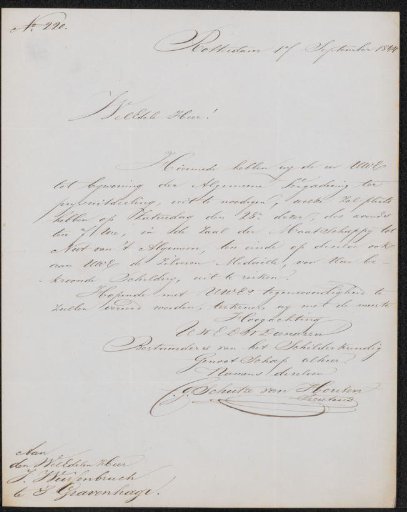 No. 220.
Rotterdam 17 September 1844
WelEdele Heer!
Hiermede hebben wij de eer UWE
tot bywoning der Algemeene Vergadering ter
prysuitdeeling, uit te noodigen; welke zal plaats
hebben op Zaturdag den 28e dezer, des avonds
ten 7 Ure, in de Zaal der Maatschappy tot
Nut van 't Algemeen, ten einde op dezelve ook
aan UWE de Zilveren Medaille voor Uw be-
kroonde Schildery, uit te reiken.
Hopende met UWEs tegenwoordigheid te
zullen vereerd worden, teekenen wy met de meeste
Hoogachting
UWED Dienaren
Bestuurders van het Schilderkundig
Genootschap alhier
Namens dezelve
Schultze van Houten
Secretaris
Aan
den WelEdelen Heer
J. Weissenbruch
te S'Gravenhage!